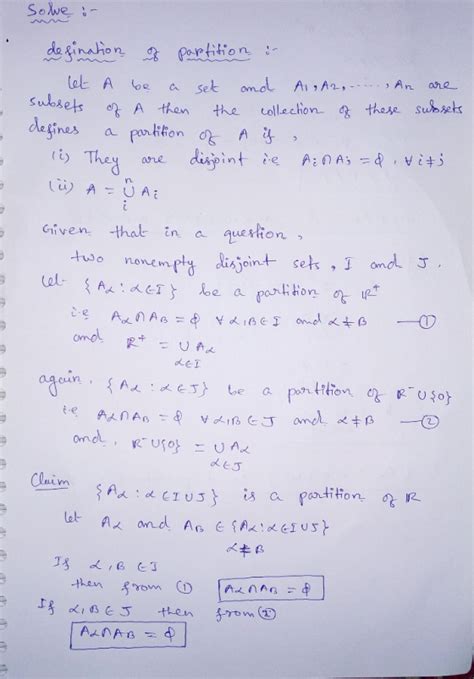 Solve :-
defination of partition :-
Let A be a set and A1, A2, ......, An are
subsets of A then the collection of these subsets
defines a partition of A if,
(i) They are disjoint i.e Ai∩Aj = ϕ, ∀ i≠j
(ii) A = ⋃ⁿᵢ Ai
Given that in a question,
two nonempty disjoint sets, I and J.
Let {Aα : α∈I} be a partition of R⁺
i.e Aα∩AB = ϕ ∀ α,B∈I and α≠B —①
and R⁺ = ∪ Aα
α∈I
again, {Aα : α∈J} be a partition of R⁻∪{0}
i.e Aα∩AB = ϕ ∀ α,B∈J and α≠B —②
and, R⁻∪{0} = ∪ Aα
α∈J
Claim {Aα : α∈I∪J} is a partition of R
Let Aα and AB ∈ {Aα : α∈I∪J}
α≠B
If α,B ∈ I
then from ① Aα∩AB = ϕ
If α,B ∈ J then from ②
Aα∩AB = ϕ